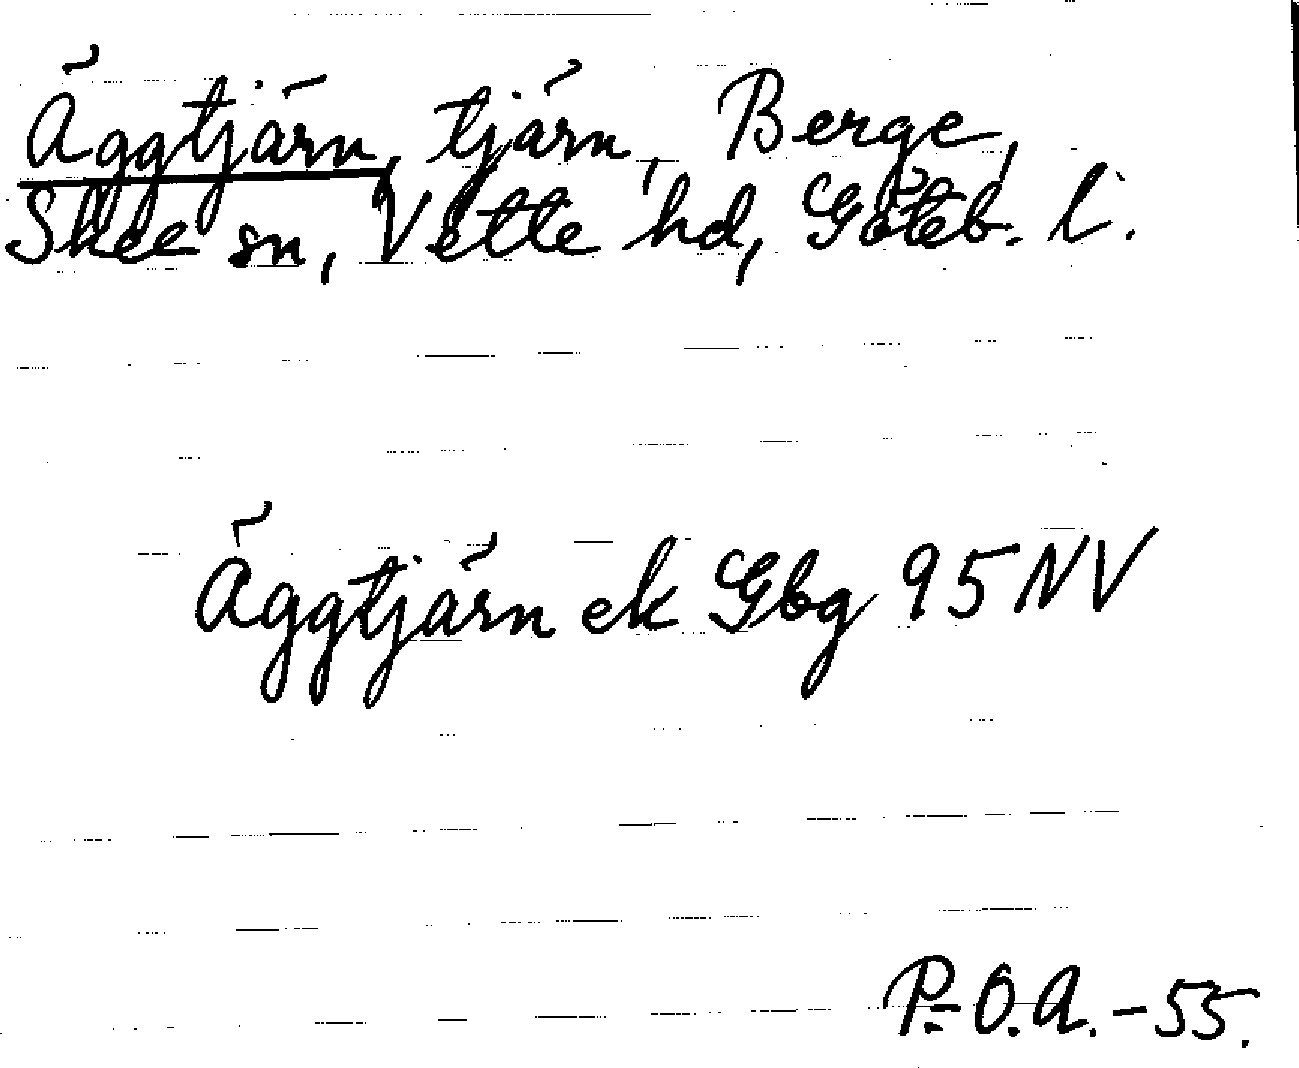 Äggtjärn, tjärn, Berge,
Skee sn, Vette hd, Göteb. l.
Äggtjärn ek Gbg 95 NV
P.-O.A.-55.